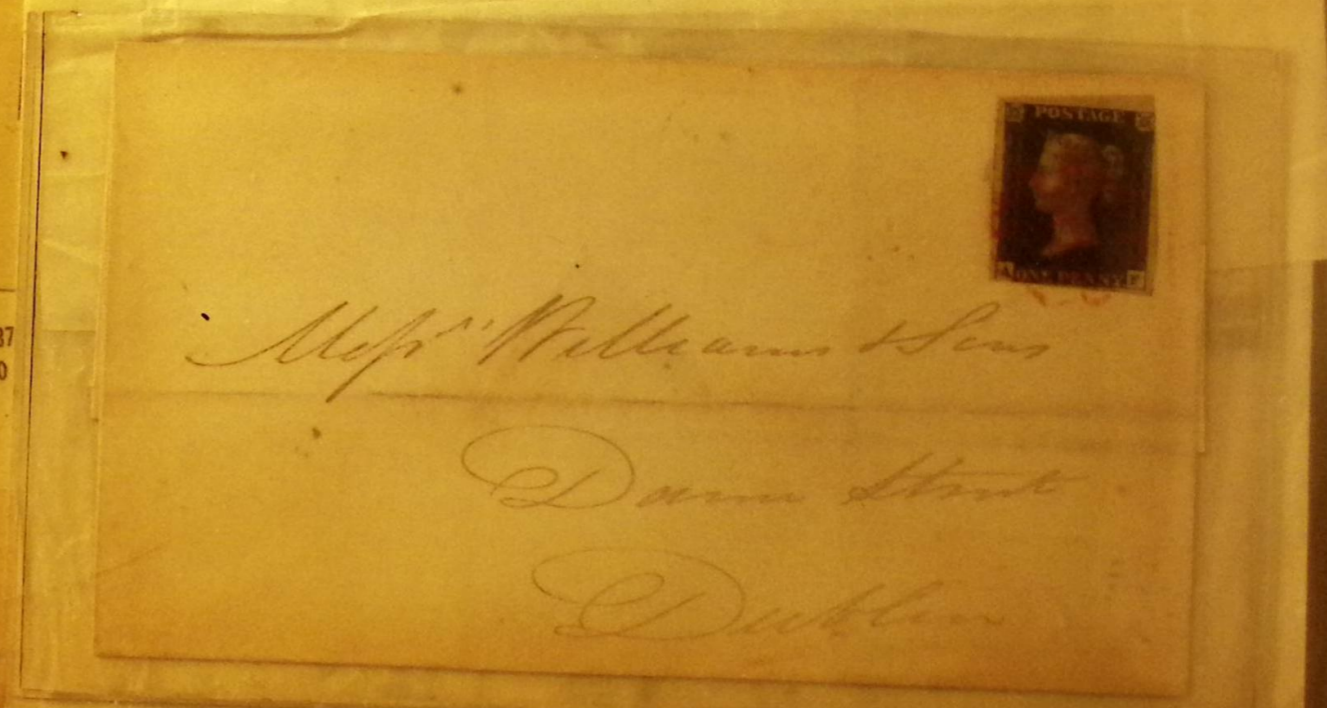 POSTAGE
ONE PENNY
A F
Messrs Williams & Sons
Dame Street
Dublin
37
0